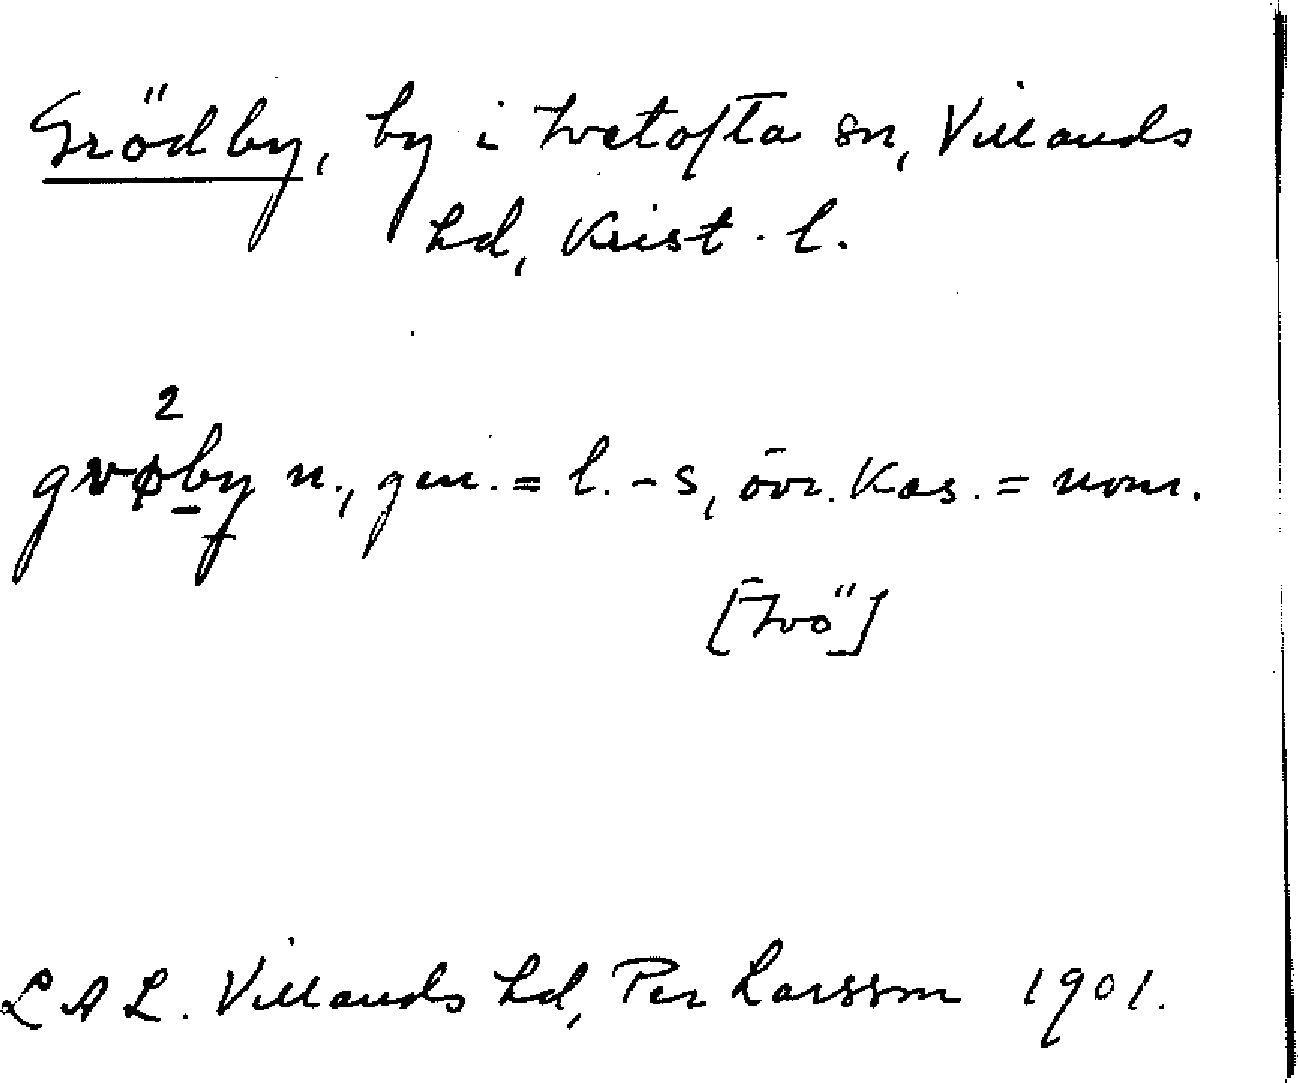 Grödby, by i Ivetofta sn, Villands
hd, Krist. l.
grø²by n., gen. = l. -s, övr. kas. = nom.
[Ivö]
LAL. Villands hd, Per Larsson 1901.